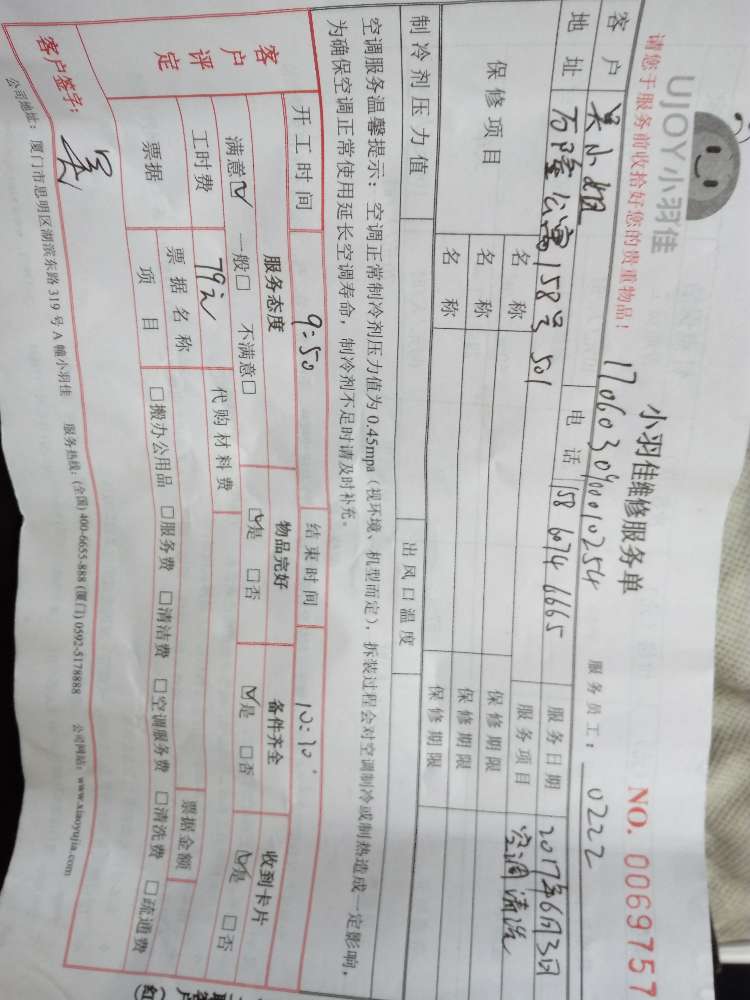 UJOY小羽佳
小羽佳维修服务单
NO. 0069757
请您于服务前收拾好您的贵重物品！
1706030900010254
服务员工：0222
客户 吴小姐 电话 158 6074 6665 服务日期 2017年6月3日
地址 万隆公寓158号501 服务项目 空调清洗
保修项目 名称 保修期限
名称 保修期限
名称 保修期限
制冷剂压力值 出风口温度
空调服务温馨提示：空调正常制冷剂压力值为0.45mpa（视环境、机型而定），拆装过程会对空调制冷或制热造成一定影响，
为确保空调正常使用延长空调寿命，制冷剂不足时请及时补充。
开工时间 9:50 结束时间 10:30
客户评定 服务态度 物品完好 备件齐全 收到卡片
满意☑ 一般□ 不满意□ ☑是 □否 ☑是 □否 ☑是 □否
工时费 79元 代购材料费
票据 票据名称 票据金额
项目 □搬办公用品 □服务费 □清洁费 □空调服务费 □清洗费 □疏通费
客户签字：吴
公司地址：厦门市思明区湖滨东路319号A幢小羽佳 服务热线：(全国) 400-6655-888 (厦门) 0592-5178888 公司网站：www.xiaoyujia.com